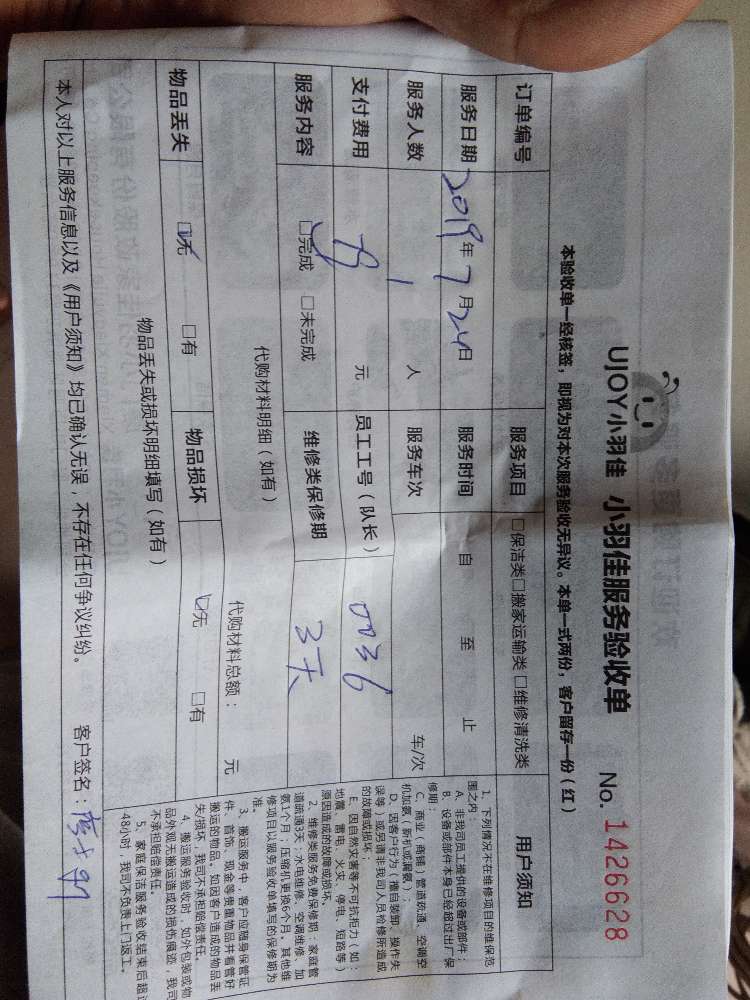 UJOY小羽佳 小羽佳服务验收单 No. 1426628
本验收单一经核签，即视为对本次服务验收无异议。本单一式两份，客户留存一份（红）
订单编号 服务项目 □保洁类□搬家运输类□维修清洗类
服务日期 2019年7月24日 服务时间 自 至 止
服务人数 1 人 服务车次 车/次
支付费用 元 员工工号（队长） 0036
服务内容 □完成 □未完成 维修类保修期 3天
代购材料明细（如有） 代购材料总额： 元
物品丢失 □无 □有 物品损坏 □无 □有
物品丢失或损坏明细填写（如有）
本人对以上服务信息以及《用户须知》均已确认无误，不存在任何争议纠纷。 客户签名：
用户须知
1、下列情况不在维修项目的维保范
围之内：
A、非我司员工提供的设备或部件；
B、设备或部件本身已经超过出厂保
修期；
C、商业（商铺）管道疏通、空调空
机加氨（新机或漏氨）；
D、因客户行为（擅自装卸、操作失
误等）或另请非我司人员检修所造成
的故障或损坏；
E、因自然灾害等不可抗拒力（如：
地震、雷电、火灾、停电、短路等）
原因造成的故障或损坏。
2、维修类服务免费保修期：家庭管
道疏通3天；水电维修、空调维修、加
氨1个月；压缩机更换6个月。其他维
修项目以服务验收单填写的保修期为
准。
3、搬运服务中，客户应随身保管证
件、首饰、现金等贵重物品并看管好
搬运的物品。如因客户造成的物品丢
失/损坏，我司不承担赔偿责任。
4、搬运服务验收时，如外包装或物
品外观无搬运造成的损伤痕迹，我司
不承担赔偿责任。
5、家庭保洁服务验收结束后超过
48小时，我司不负责上门返工。